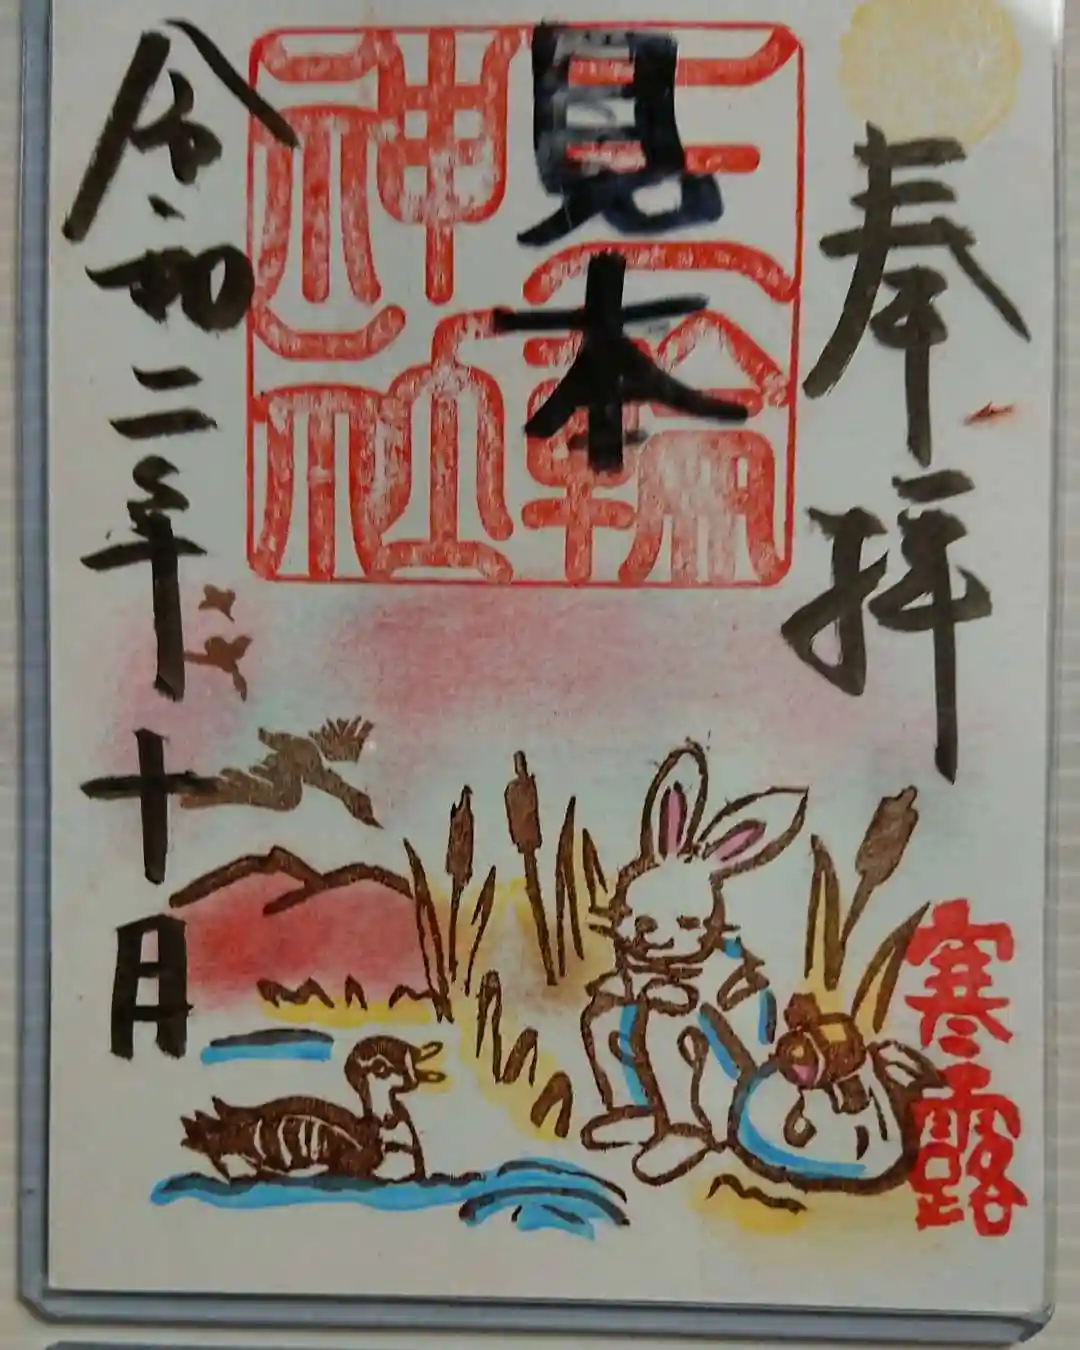 奉拝
見本
三輪
神社
令和二年十月
寒露